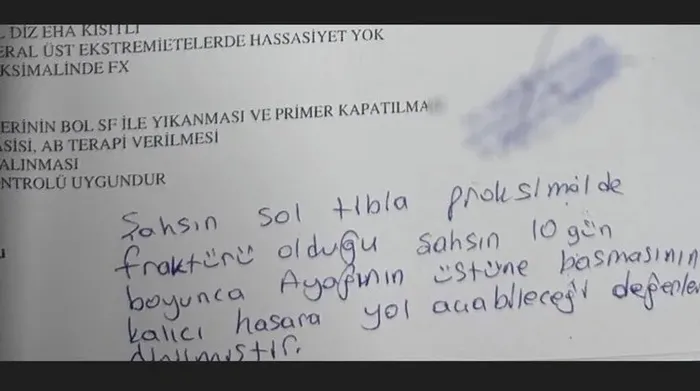 DİZ EHA KISITLI
ERAL ÜST EKSTREMİETELERDE HASSASİYET YOK
KSİMALİNDE FX
ERİNİN BOL SF İLE YIKANMASI VE PRİMER KAPATILMA
ASİSİ, AB TERAPİ VERİLMESİ
ALINMASI
NTROLÜ UYGUNDUR
Şahsın sol tibia proksimalde
fraktürü olduğu şahsın 10 gün
boyunca Ayağının üstüne basmasının
kalıcı hasara yol açabileceği değerlen
dirilmiştir.